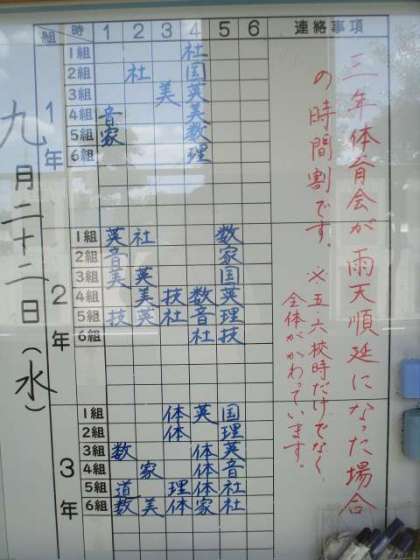 組 時 1 2 3 4 5 6 連絡事項
九月二十二日(水)
1年
1組 社
2組 社 国
3組 美 英
4組 音 美
5組 家 数
6組 理
2年
1組 英 社 数
2組 音 家
3組 美 英 国
4組 美 技 数 英
5組 技 英 社 音 理
6組 社 技
3年
1組 体 英 国
2組 体 理
3組 数 体 英
4組 家 体 音
5組 道 理 体 社
6組 数 美 体 家 社
三年体育会が雨天順延になった場合
の時間割です。
※五・六校時だけでなく、
全体がかわっています。